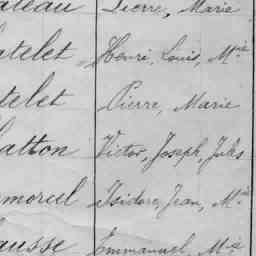 ateau Pierre, Marie
atelet Henri, Louis, Mie
telet Pierre, Marie
atton Victor, Joseph, Jules
moreul Isidore, Jean, Mie
ausse Emmanuel, Mie